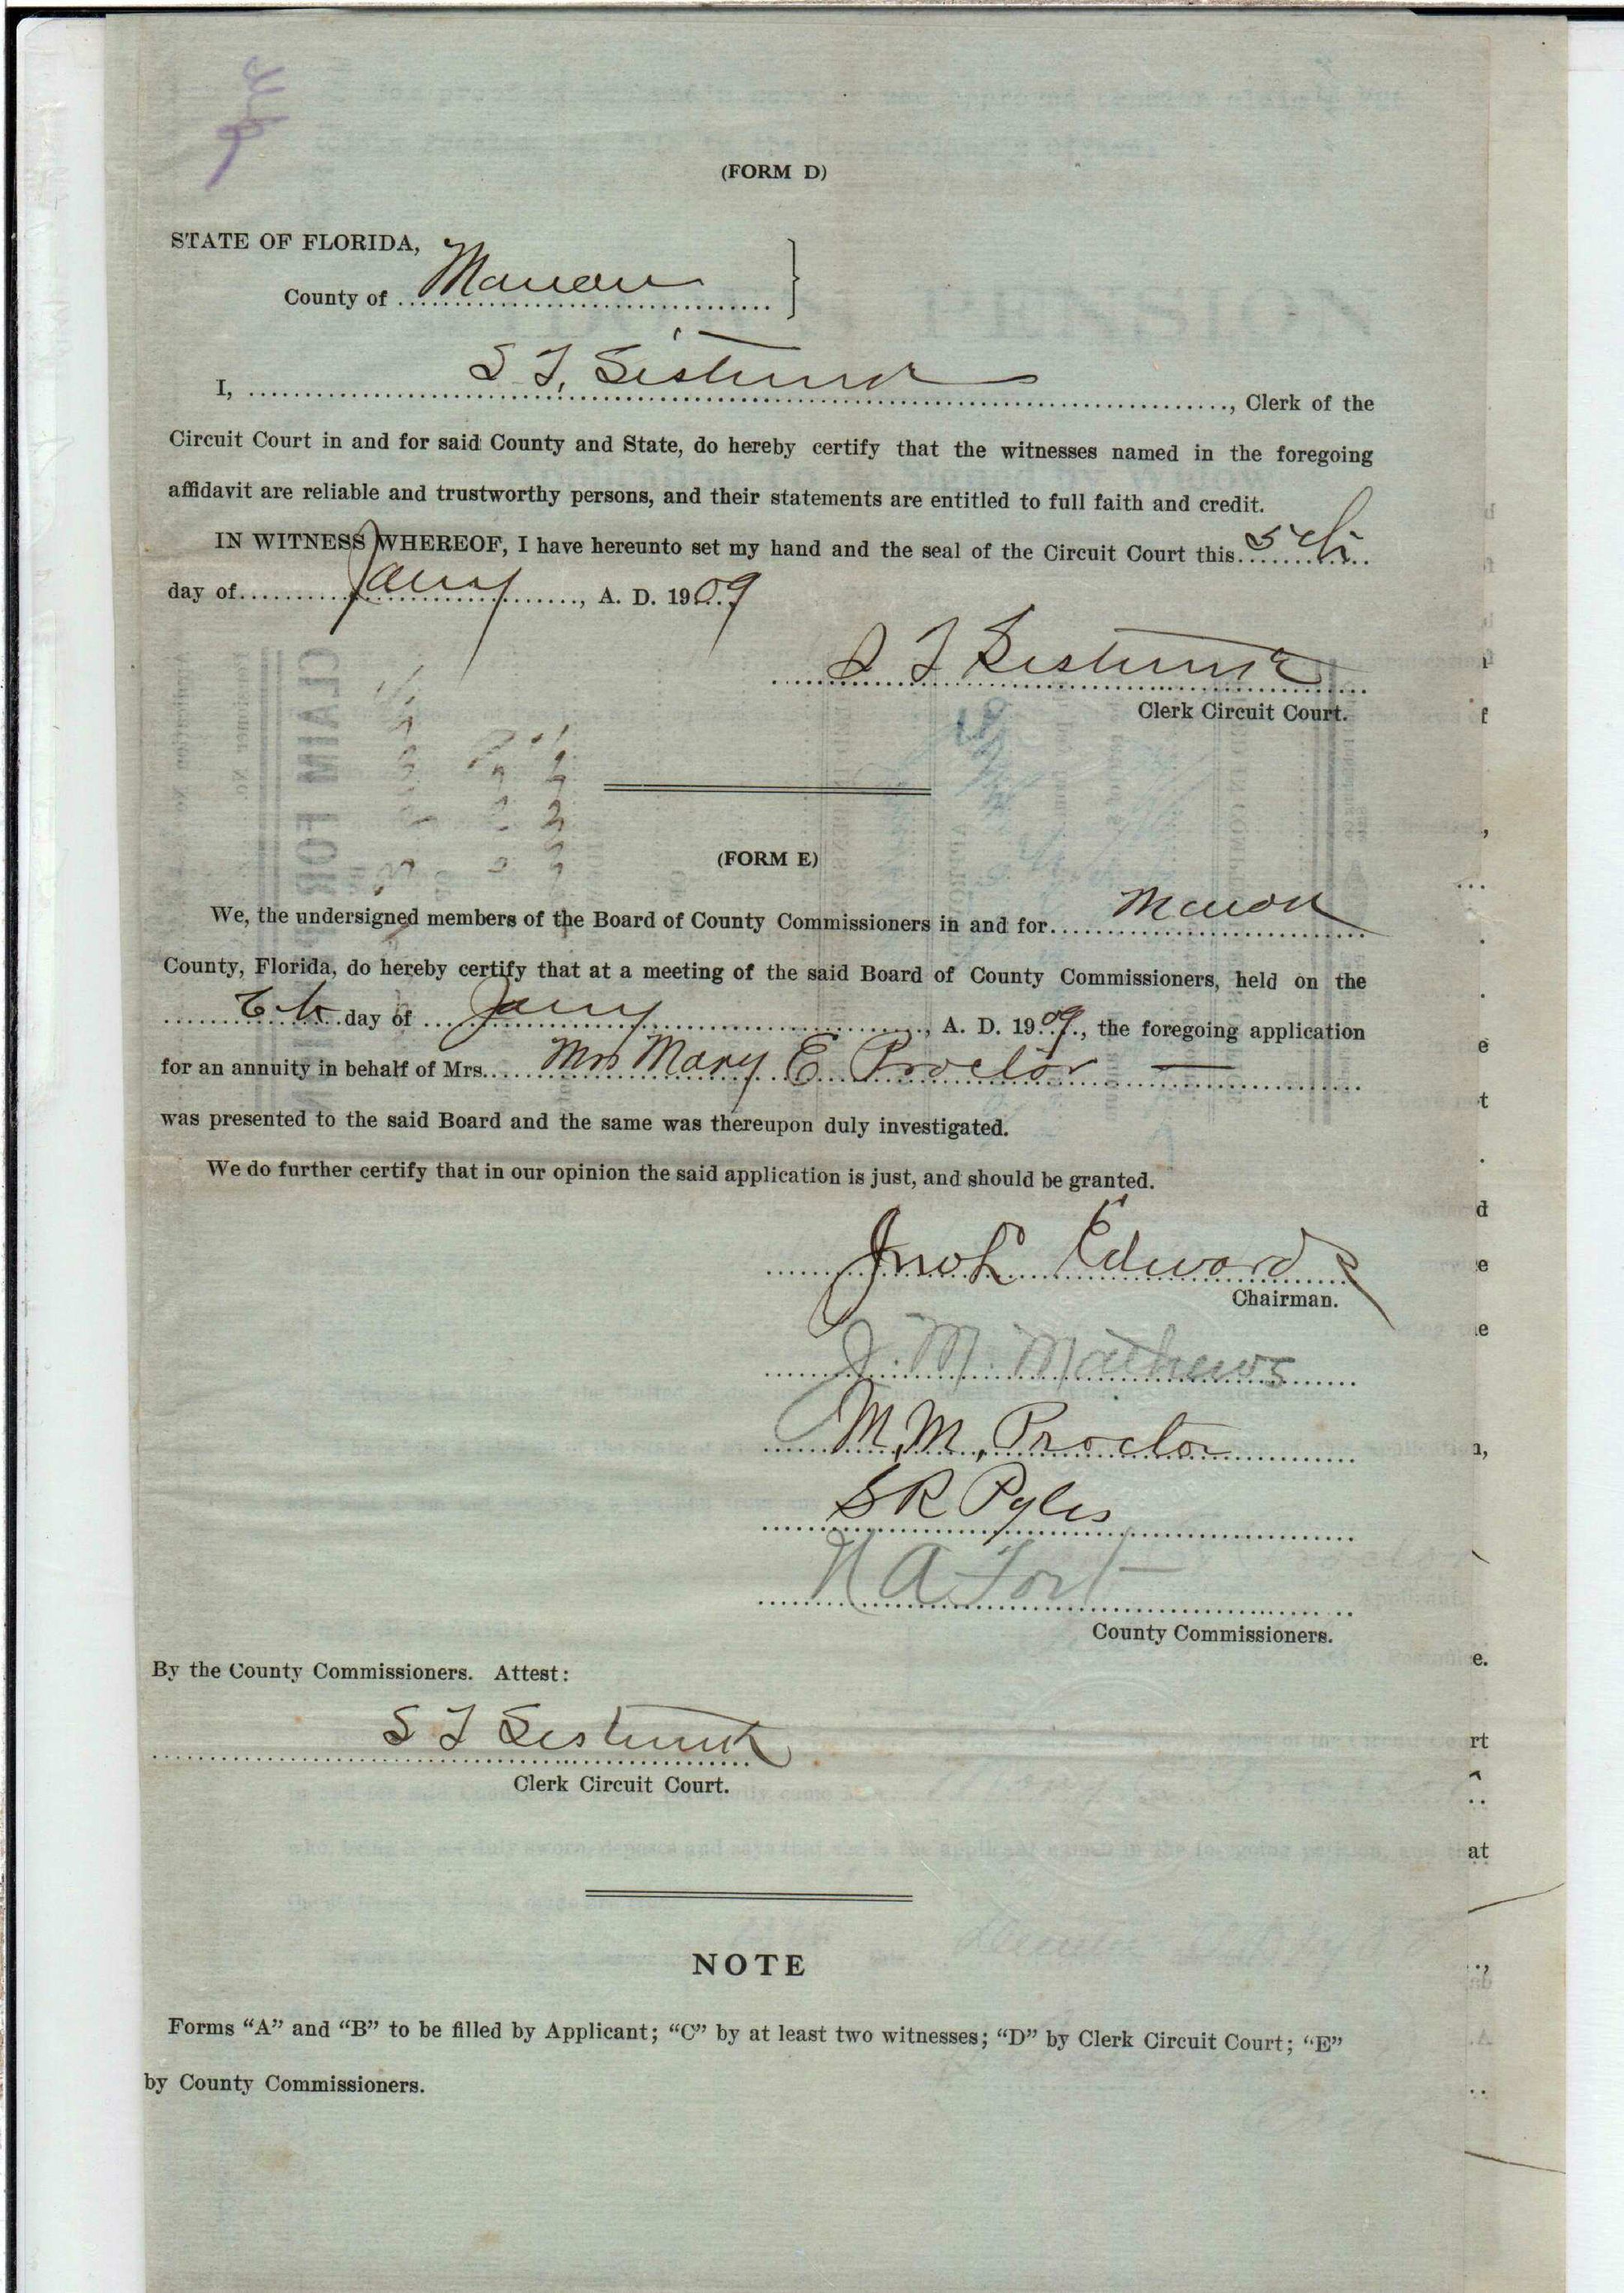 (FORM D)
STATE OF FLORIDA,
County of Marion
I, S T, Sistrunk, Clerk of the
Circuit Court in and for said County and State, do hereby certify that the witnesses named in the foregoing
affidavit are reliable and trustworthy persons, and their statements are entitled to full faith and credit.
IN WITNESS WHEREOF, I have hereunto set my hand and the seal of the Circuit Court this 5th
day of Jany, A. D. 1909
S T Sistrunk
Clerk Circuit Court.
(FORM E)
We, the undersigned members of the Board of County Commissioners in and for Marion
County, Florida, do hereby certify that at a meeting of the said Board of County Commissioners, held on the
day of Jany, A. D. 1909, the foregoing application
for an annuity in behalf of Mrs. Mrs Mary E Proctor
was presented to the said Board and the same was thereupon duly investigated.
We do further certify that in our opinion the said application is just, and should be granted.
Jno L Edwards
Chairman.
J. M. Mathews
M, M, Proctor
S R Pyles
N A Fort
County Commissioners.
By the County Commissioners. Attest:
S T Sistrunk
Clerk Circuit Court.
NOTE
Forms “A” and “B” to be filled by Applicant; “C” by at least two witnesses; “D” by Clerk Circuit Court; “E”
by County Commissioners.